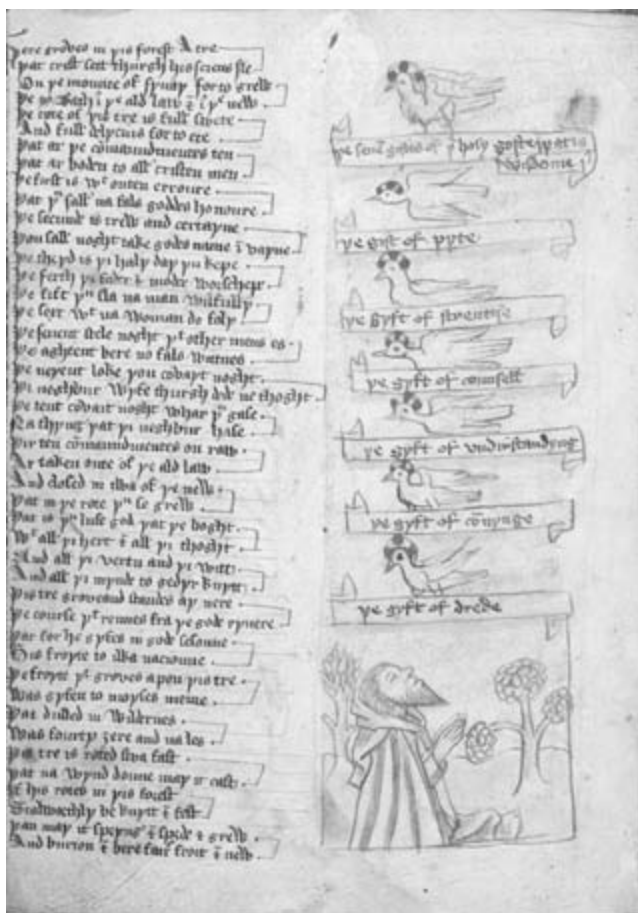 Here groves in þis forest A tre
þat crist sett thurgh his
On þe mounte of synay for to grew
þe ald law þe new
þe rote of þis tre is full swete
And full delycius for to ete
þat ar þe comawndmentes ten
þat ar boden to all cristen men
þe first is wt outen erroure
þat þu sall na fals goddes honoure
þe secund is trew and certayne
þou sall noght take gods name ī vayne
þe thyrd is þi haly day þu kepe
þe ferth þi fader & moder worschepe
þe fift þu sla na man wilfully
þe sext wt na woman do foly
þe seuent stele noght þt other mens es
þe aghtent bere no fals watnes
þe neyent loke þou covayt noght
þi neghbur wyfe thurgh ded ne thoght
þe tent covait noght whar þu gase
Na thyng þat þi neghbur hase
þir ten cōmawndmentes on raw
Ar taken oute of þe ald law
And closed in twa of þe new
þat in þe rote þu se grew
þat is þu luf god þat þe boght
Wt all þi hert ī all þi thoght
And all þi vertu and þi witt
And all þi mynde to gedyr knytt
þis tre growand standes ay nere
þe course þt rennes fra þe gode ryuere
þat for he gyfes in gode sesonne
His froyte to ilka nacionne
þe froyte þt groves apon þis tre
Was gyfen to moyses meine
þat dwelled in wildernes
Was fourty ȝere and na les
þis tre is roted swa fast
þat na wynd donne may it cast
If his roted in þis forest
Stalworthly be knytt ī fest
þan may it sprynge ī sprede & grew
And burion ī bere fair froit ī new
þe seuē giftes of þe holy goste þat is
wysdome
þe gift of pyte
þe gyft of strenthe
þe gyft of counsell
þe gyft of vndirstandyng
þe gyft of cōnynge
þe gyft of drede